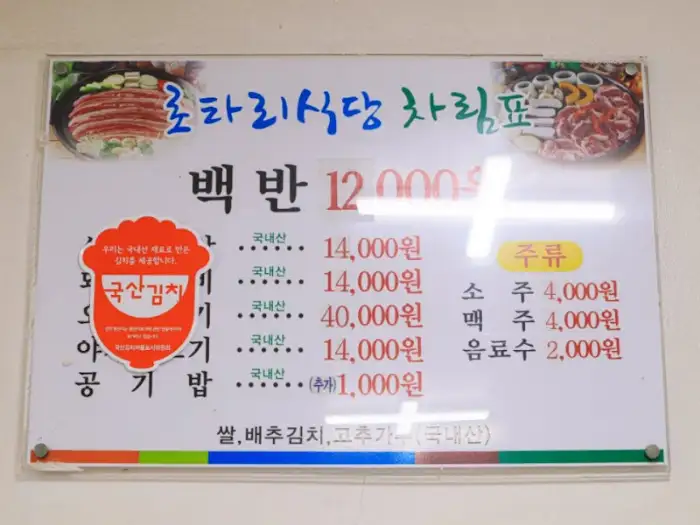 로타리식당 차림표
백반 12,000원
국내산 14,000원
국내산 14,000원
국내산 40,000원
국내산 14,000원
공기밥 국내산 (추가)1,000원
우리는 국내산 재료로 만든
김치를 제공합니다.
국산김치
주류
소주 4,000원
맥주 4,000원
음료수 2,000원
쌀,배추김치,고추가루(국내산)